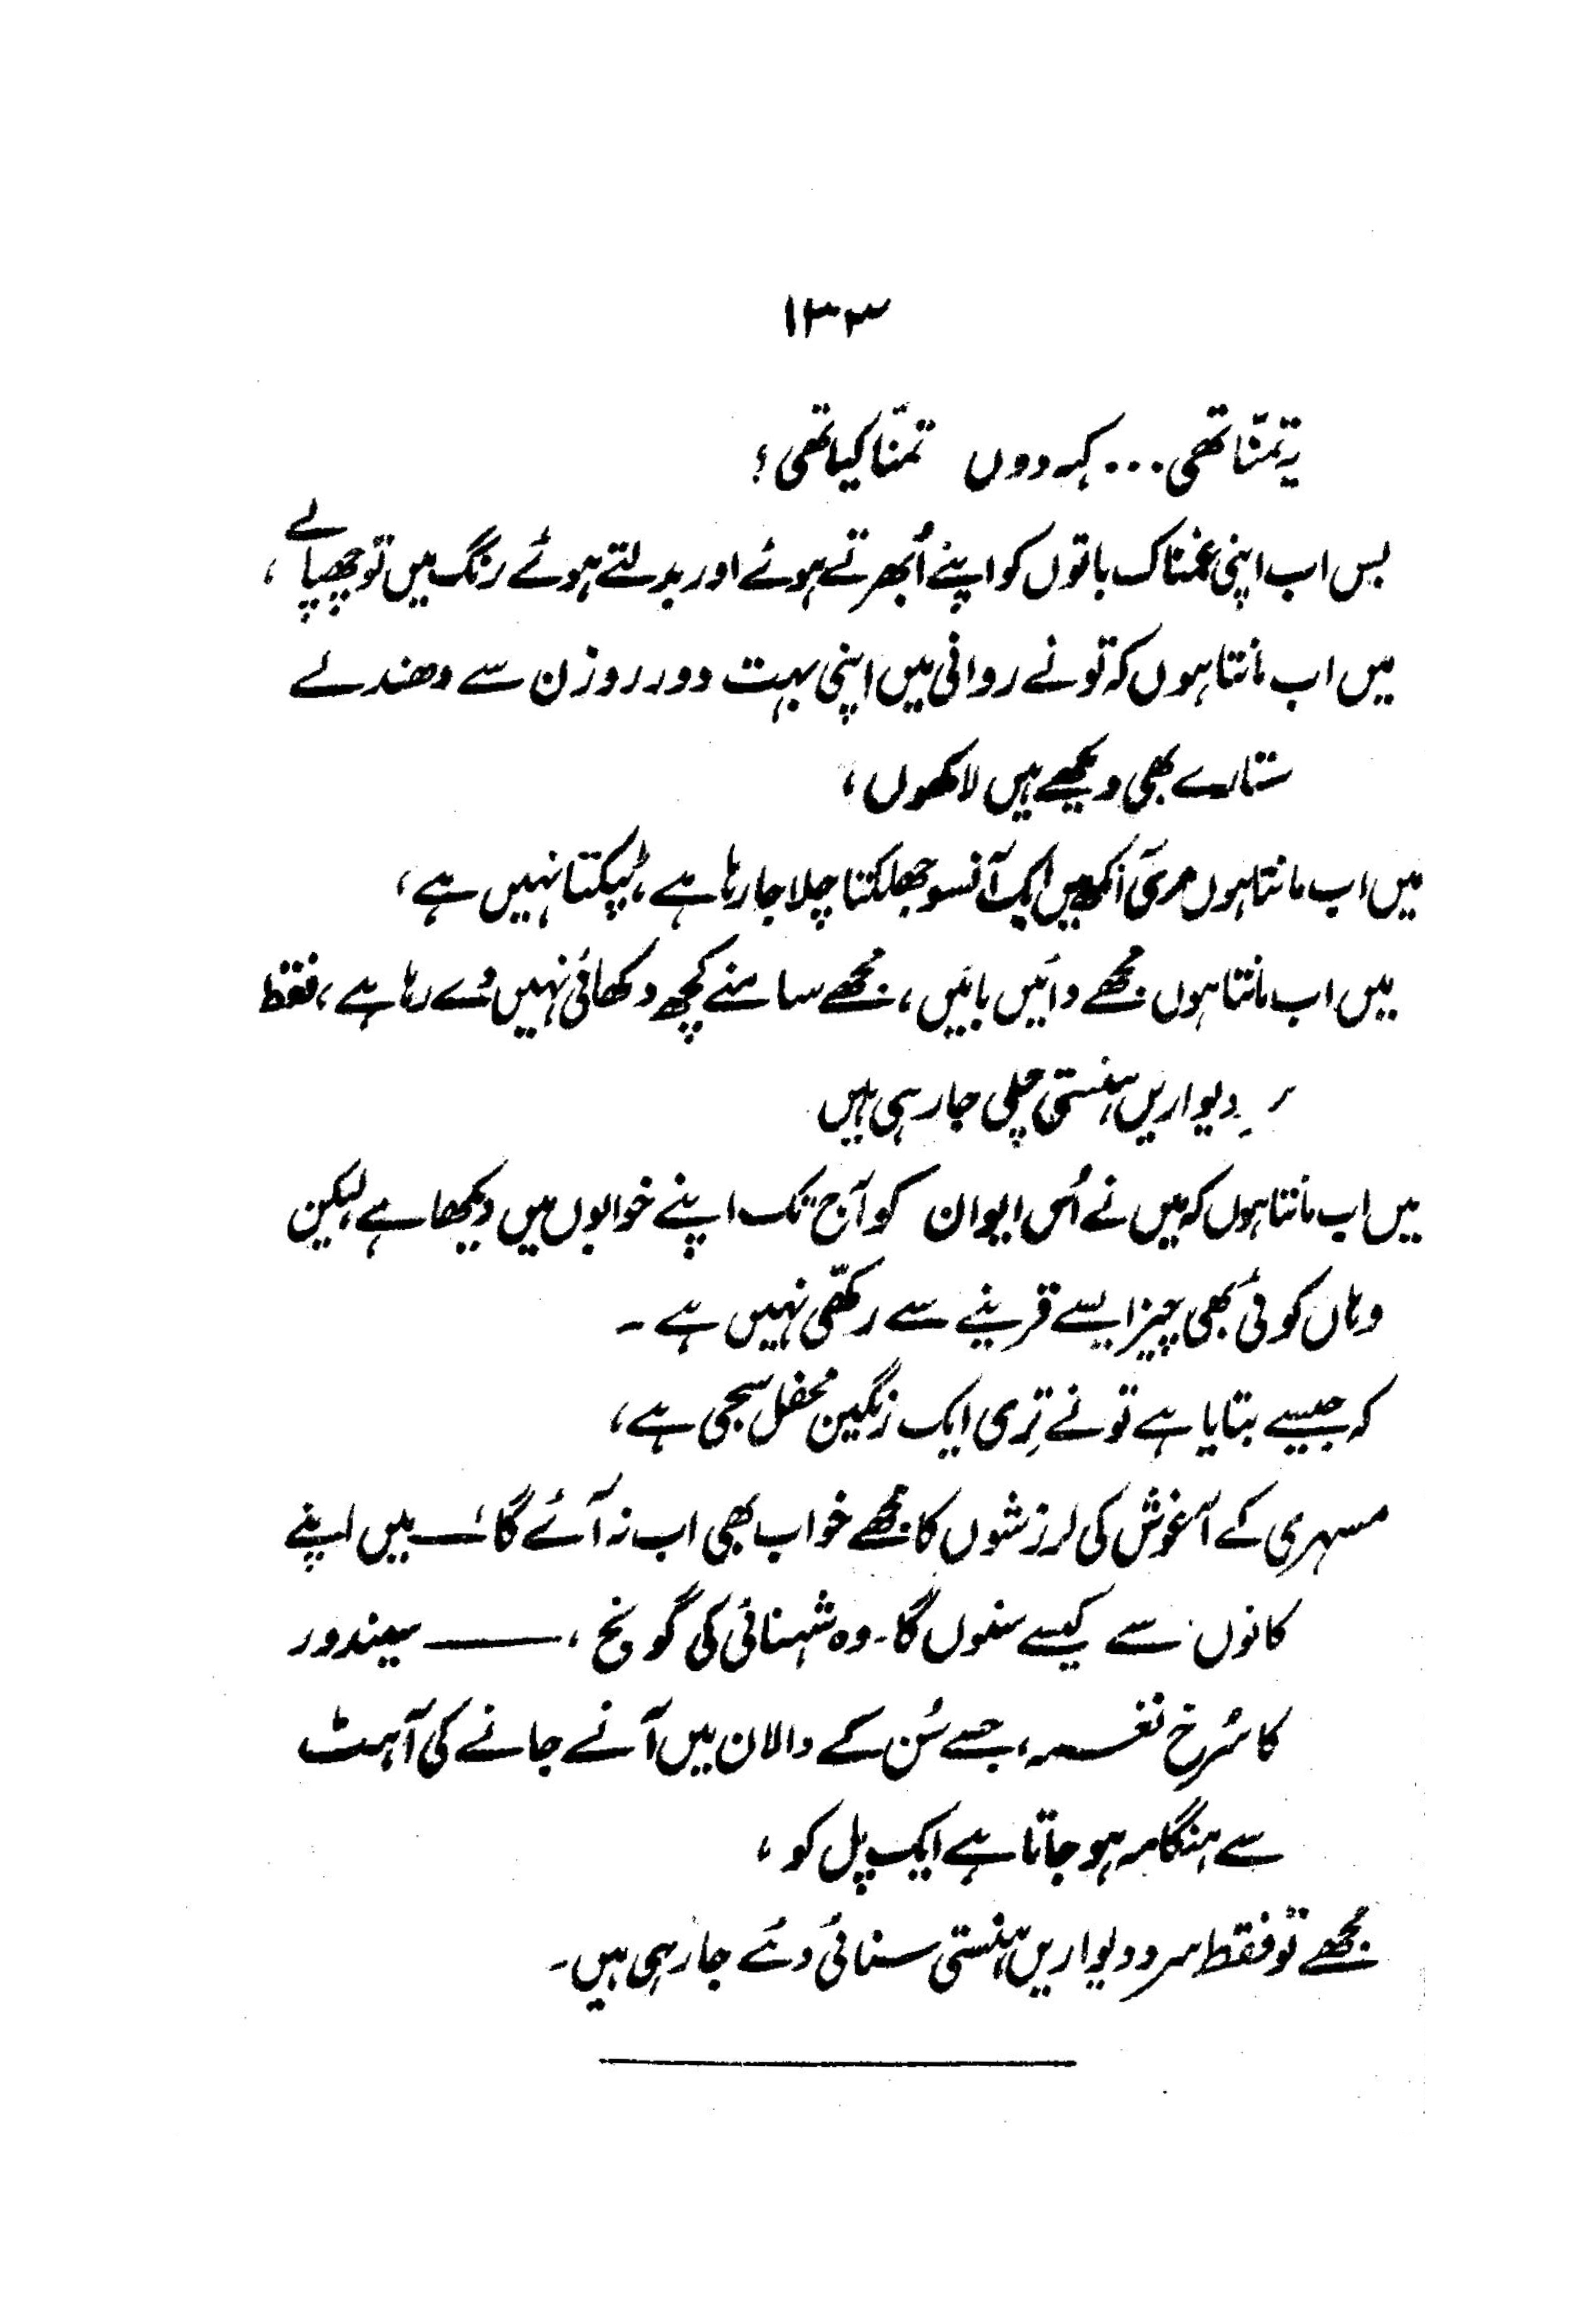 ۱۳۳
یہ تمنّا تھی... کہہ دوں تمنّا کیا تھی؟
بس اب اپنی غمناک باتوں کو اپنے اُبھرتے ہوئے اور بدلتے ہوئے رنگ میں تو چھپا لے،
میں اب مانتا ہوں کہ تو نے روانی میں اپنی بہت دور روزن سے دھندلے
ستارے بھی دیکھے ہیں لاکھوں،
میں اب مانتا ہوں مری آنکھ میں ایک آنسو جھلکتا چلا جا رہا ہے، ٹپکتا نہیں ہے،
میں اب مانتا ہوں مجھے دائیں بائیں، مجھے سامنے کچھ دکھائی نہیں دے رہا ہے، فقط
دیواریں ہنستی چلی جا رہی ہیں
میں اب مانتا ہوں کہ میں نے اُس ایوان کو آج تک اپنے خوابوں میں دیکھا ہے، لیکن
وہاں کوئی بھی چیز ایسے قرینے سے رکھی نہیں ہے۔
کہ جیسے بتایا ہے تو نے تِری ایک رنگین محفل سجی ہے،
مسہری کے آغوش کی لرزشوں کا مجھے خواب بھی اب نہ آئے گا ــ میں اپنے
کانوں سے کیسے سنوں گا۔ وہ شہنائی کی گونج، ـــــ سیندور
کا سُرخ نغمہ، جسے سُن کے دالان میں آنے جانے کی آہٹ
سے ہنگامہ ہو جاتا ہے ایک پل کو،
مجھے تو فقط سرد دیواریں ہنستی سنائی دئے جا رہی ہیں۔